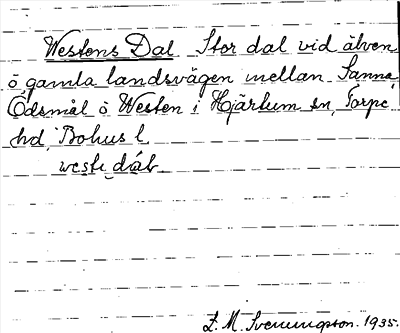 Westens Dal Stor dal vid älven
o gamla landsvägen mellan Sanna,
Ödsmål o Westen i Hjärtum sn, Torpe
hd, Bohus l.
L. M. Svenungsson. 1935.